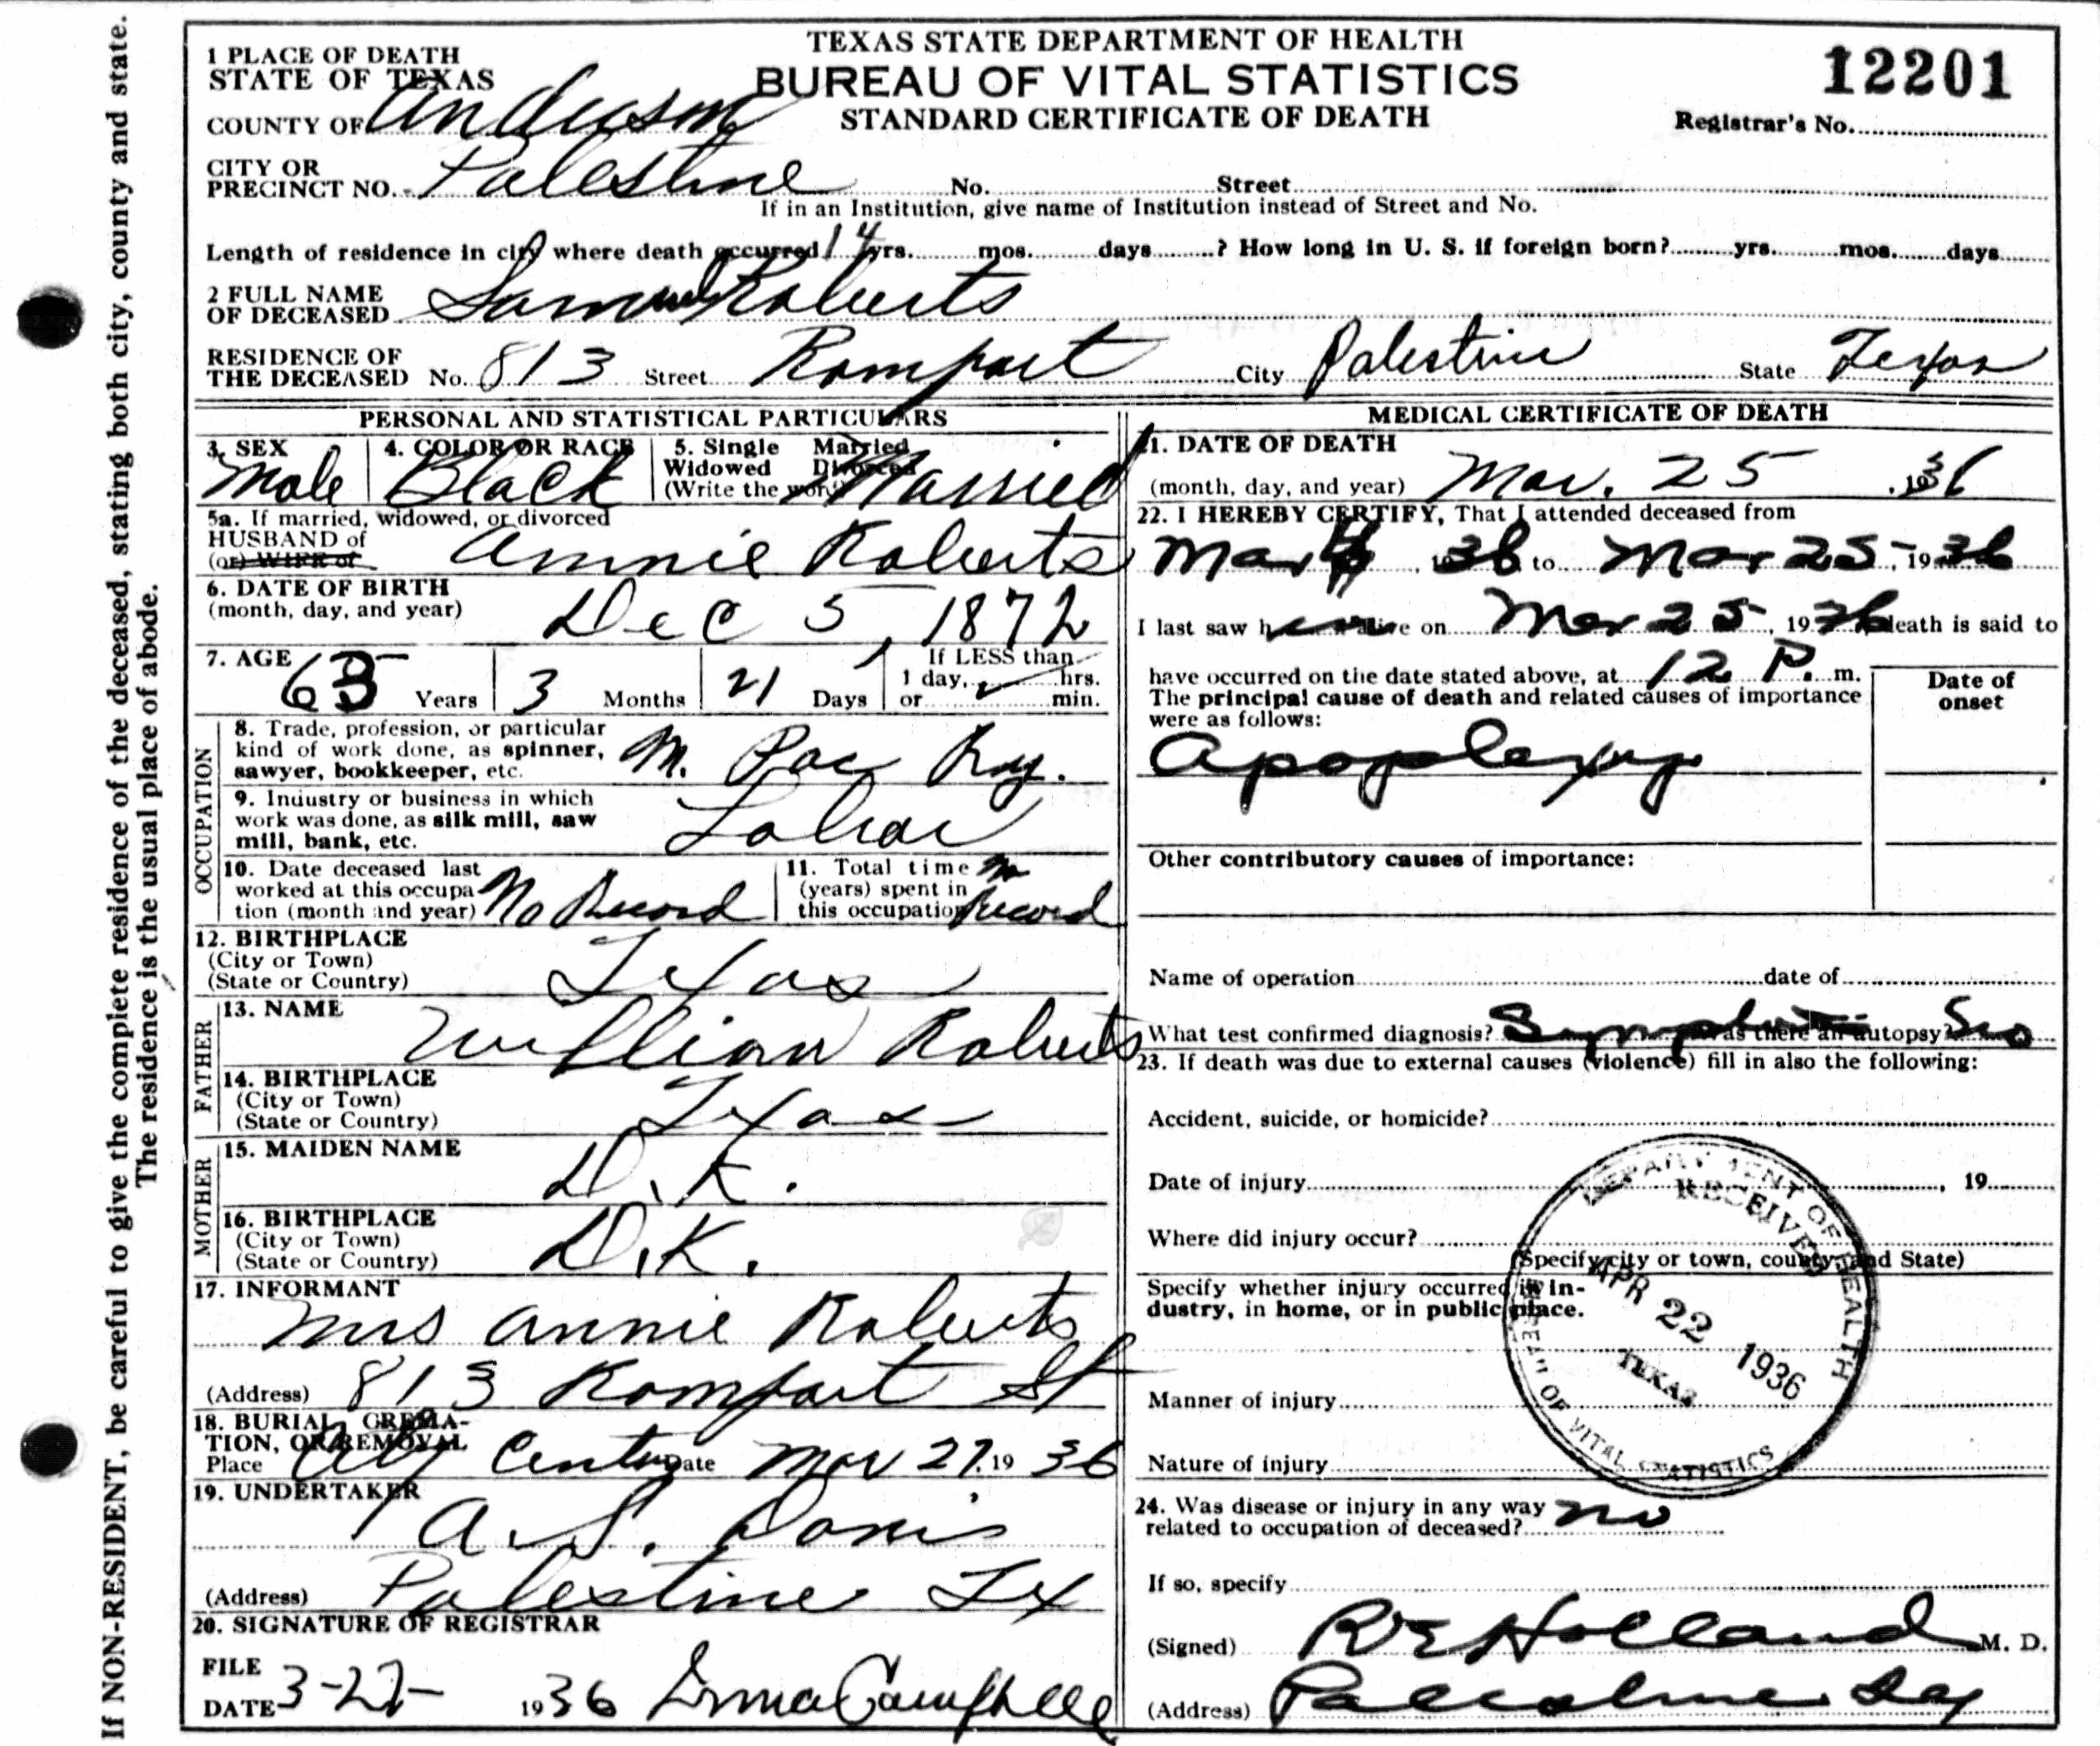 If NON-RESIDENT, be careful to give the complete residence of the deceased, stating both city, county and state.
The residence is the usual place of abode.
TEXAS STATE DEPARTMENT OF HEALTH
BUREAU OF VITAL STATISTICS
STANDARD CERTIFICATE OF DEATH
12201
Registrar's No.
1 PLACE OF DEATH
STATE OF TEXAS
COUNTY OF Anderson
CITY OR
PRECINCT NO. Palestine No. Street
If in an Institution, give name of Institution instead of Street and No.
Length of residence in city where death occurred 14 yrs. mos. days ? How long in U. S. if foreign born? yrs. mos. days
2 FULL NAME
OF DECEASED Samuel Roberts
RESIDENCE OF
THE DECEASED No. 813 Street Rampart City Palestine State Texas
PERSONAL AND STATISTICAL PARTICULARS
3. SEX
Male
4. COLOR OR RACE
Black
5. Single Married
Widowed Divorced
(Write the word) Married
5a. If married, widowed, or divorced
HUSBAND of
(or) WIFE of Annie Roberts
6. DATE OF BIRTH
(month, day, and year) Dec 5, 1872
7. AGE 63 Years 3 Months 21 Days
If LESS than
1 day, hrs.
or min.
OCCUPATION
8. Trade, profession, or particular
kind of work done, as spinner,
sawyer, bookkeeper, etc. M. Pac Ry.
9. Industry or business in which
work was done, as silk mill, saw
mill, bank, etc. Labor
10. Date deceased last
worked at this occupa
tion (month and year) No Record
11. Total time No
(years) spent in
this occupation Record
12. BIRTHPLACE
(City or Town)
(State or Country) Texas
FATHER
13. NAME
William Roberts
14. BIRTHPLACE
(City or Town)
(State or Country) Texas
MOTHER
15. MAIDEN NAME
D.K.
16. BIRTHPLACE
(City or Town)
(State or Country) D.K.
17. INFORMANT
Mrs Annie Roberts
(Address) 813 Rampart St
18. BURIAL, CREMA-
TION, OR REMOVAL
Place City Date Mar 27, 1936
19. UNDERTAKER
A. S. Davis
(Address) Palestine Tx
20. SIGNATURE OF REGISTRAR
FILE
DATE 3-27- 1936 Irma Campbell
MEDICAL CERTIFICATE OF DEATH
21. DATE OF DEATH
(month, day, and year) Mar. 25, 1936
22. I HEREBY CERTIFY, That I attended deceased from
Mar , 1936 to Mar 25, 1936
I last saw h alive on Mar 25, 1936 death is said to
have occurred on the date stated above, at 12 P. m.
The principal cause of death and related causes of importance
were as follows:
Date of
onset
Apoplexy
Other contributory causes of importance:
Name of operation date of
What test confirmed diagnosis? Was there an autopsy? No
23. If death was due to external causes (violence) fill in also the following:
Accident, suicide, or homicide?
Date of injury , 19
Where did injury occur?
(Specify city or town, county, and State)
Specify whether injury occurred in in-
dustry, in home, or in public place.
Manner of injury
Nature of injury
DEPARTMENT OF HEALTH
RECEIVED
APR 22 1936
TEXAS
BUREAU OF VITAL STATISTICS
24. Was disease or injury in any way
related to occupation of deceased? No
If so, specify
(Signed) R E Holland M. D.
(Address) Palestine Tex